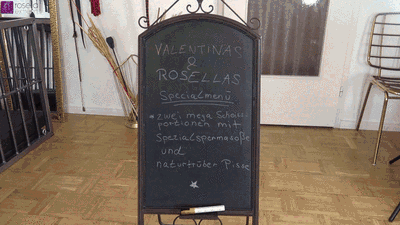 rosella
VALENTINAS
&
ROSELLAS
Specialmenü
* zwei mega Scheiss
portionen mit
Spezialspermasoße
und
naturtrüber Pisse